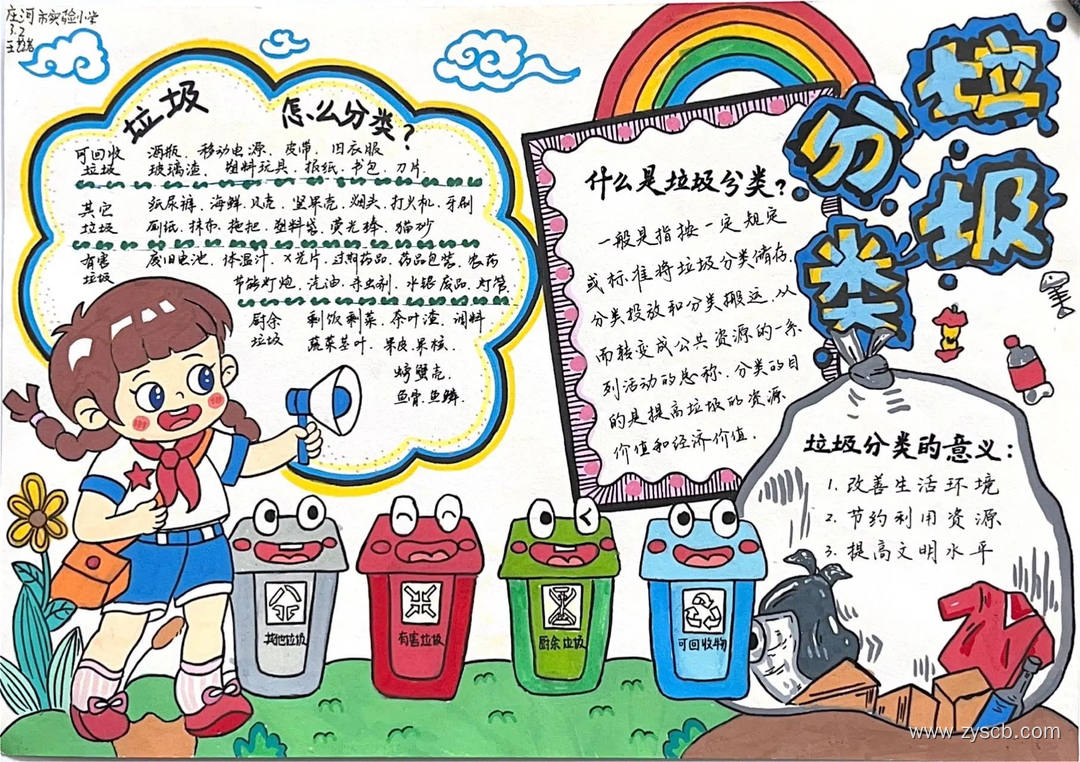 庄河市实验小学
3.2
垃圾分类
垃圾 怎么分类?
可回收 酒瓶、移动电源、皮带、旧衣服
垃圾 玻璃渣、塑料玩具、报纸、书包、刀片.
其它 纸尿裤、海鲜贝壳、坚果壳、烟头、打火机、牙刷
垃圾 厕纸、抹布、拖把、塑料袋、荧光棒、猫砂
有害 废旧电池、体温计、X光片、过期药品、药品包装、农药
垃圾 节能灯炮、汽油、杀虫剂、水银废品、灯管.
厨余 剩饭剩菜、茶叶渣、调料
垃圾 蔬菜茎叶、果皮果核、
螃蟹壳.
鱼骨.鱼鳞.
什么是垃圾分类?
一般是指按一定规定
或标准将垃圾分类储存、
分类投放和分类搬运、从
而转变成公共资源的一系
列活动的总称.分类的目
的是提高垃圾的资源
价值和经济价值.
垃圾分类的意义:
1.改善生活环境
2.节约利用资源
3.提高文明水平
其他垃圾
有害垃圾
厨余垃圾
可回收物
www.zyscb.com